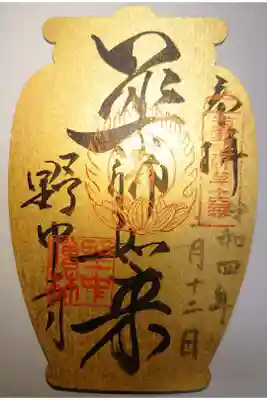 奉拝
令和四年
月十二日
薬師如来
野中寺